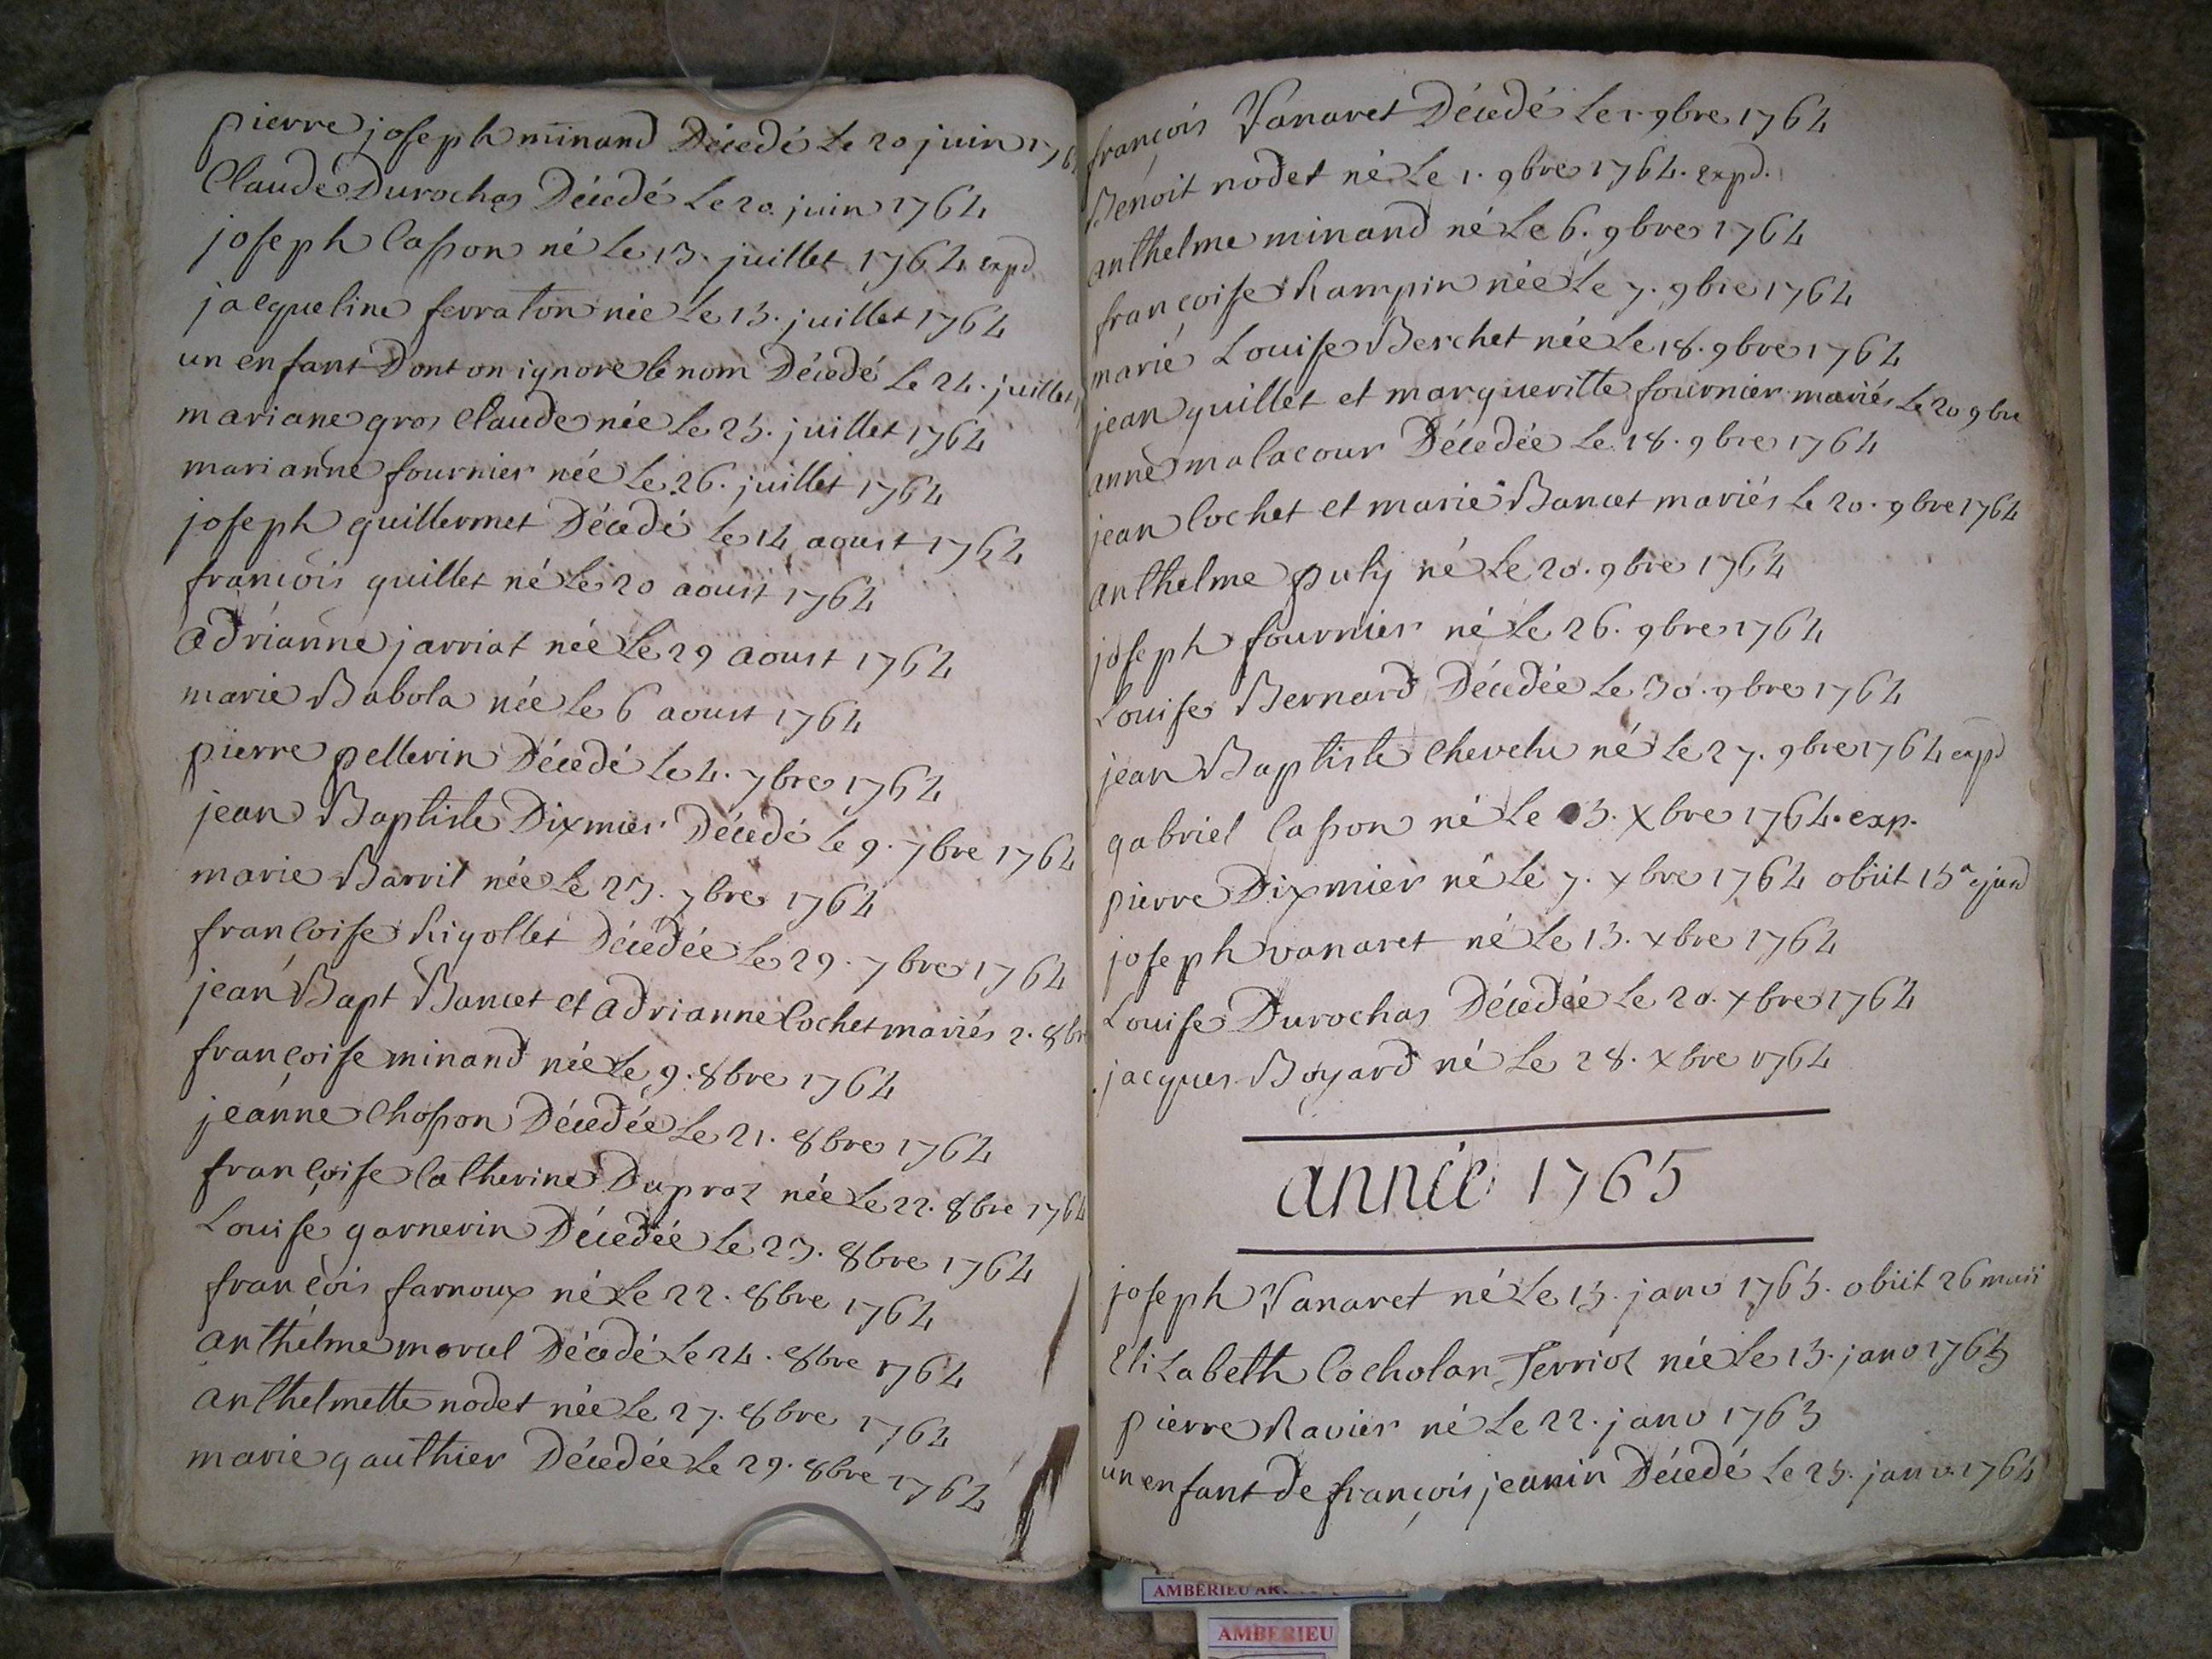 pierre joseph minand Décedé Le 20 juin 176
Claude Durochas Décedé Le 20 juin 1764
joseph Casson né Le 13. juillet 1764 expd
jacqueline ferraton née Le 13. juillet 1764
un enfant Dont on ignore le nom Décedé Le 24. juillet
mariane gros Claude née Le 25. juillet 1764
marianne fournier née Le 26. juillet 1764
joseph guillermet Décedé Le 14 aoust 1764
françois guillet né Le 20 aoust 1764
adrianne jarriat née Le 29 aoust 1764
marie Babola née Le 6 aoust 1764
pierre pellerin Décedé Le 4. 7bre 1764
jean Baptiste Dixmier Décedé Le 9. 7bre 1764
marie Barvit née Le 25. 7bre 1764
françoise Rigollet Décedée Le 29. 7bre 1764
jean Bapt Bancet et adrianne Cochet mariés 2. 8br
françoise minand née Le 9. 8bre 1764
jeanne Chosson Décedée Le 21. 8bre 1764
françoise Catherine Dupraz née Le 22. 8bre 1764
Louise garnerin Décedée Le 25. 8bre 1764
françois farnoux né Le 22. 8bre 1764
anthelme morcel Décedé Le 24. 8bre 1764
anthelmette nodet née Le 27. 8bre 1764
marie gauthier Décedée Le 29. 8bre 1764
françois Vanaret Décedé Le 1. 9bre 1764
Benoit nodet né Le 1. 9bre 1764. expd.
anthelme minand né Le 6. 9bre 1764
françoise Rampin née Le 7. 9bre 1764
marie Louise Berchet née Le 18. 9bre 1764
jean guillet et margueritte fournier mariés Le 20 9bre
anne malacour Décedée Le 18. 9bre 1764
jean Cochet et marie Bancet mariés Le 20. 9bre 1764
anthelme puly né Le 20. 9bre 1764
joseph fournier né Le 26. 9bre 1764
Louise Bernard Décedée Le 30. 9bre 1764
jean Baptiste Chevelu né Le 27. 9bre 1764 expd
gabriel Casson né Le 3. Xbre 1764. exp.
pierre Dixmier né Le 7. xbre 1764 obiit 15a ejusd
joseph vanaret né Le 13. xbre 1764
Louise Durochas Décedée Le 20. xbre 1764
jacques Boyard né Le 28. xbre 1764
année 1765
joseph Vanaret né Le 13. janv 1765. obiit 26 maii
Elizabeth Cocholan Terrioz née Le 13. janv 1765
pierre Ravier né Le 22. janv 1765
un enfant de françois jeanin Décedé Le 25. janv. 1764
AMBERIEU
AMBERIEU